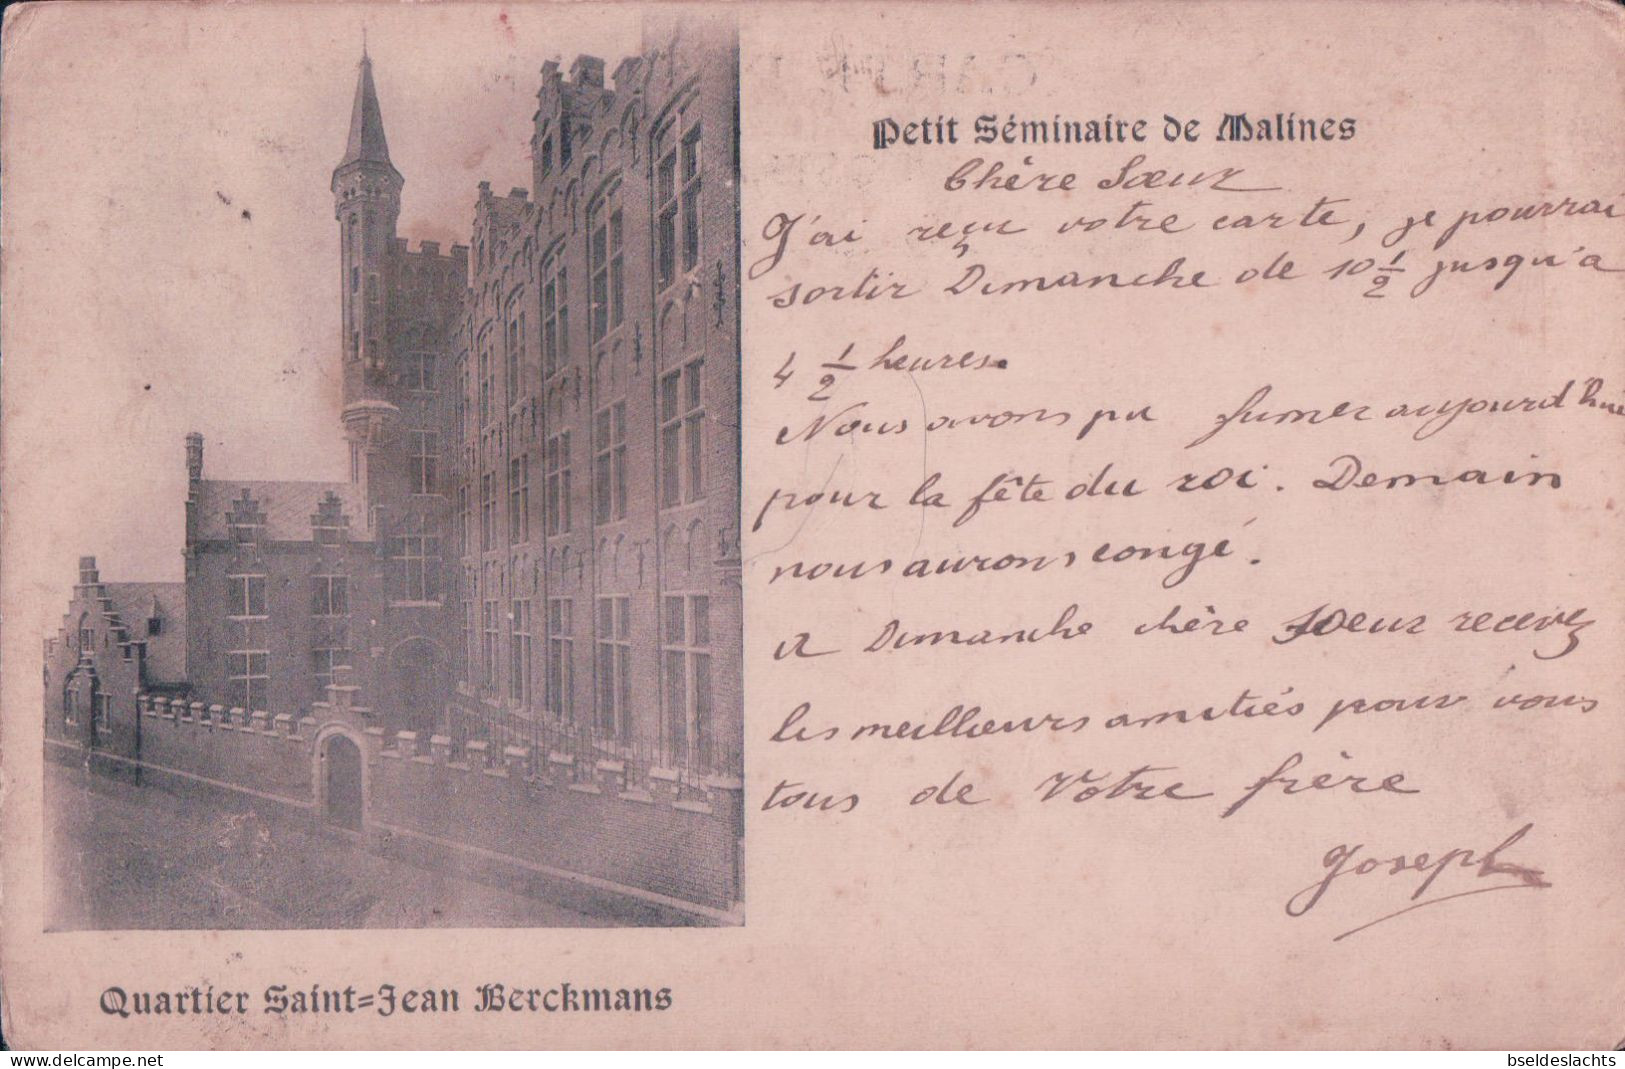 Petit Séminaire de Malines
Chère Sœur
J'ai reçu votre carte, je pourrai
sortir Dimanche de 10 1/2 jusqu'a
4 1/2 heures.
Nous avons pu fumer aujourd'hui
pour la fête du roi. Demain
nous aurons congé.
A Dimanche chère soeur recevez
les meilleurs amitiés pour vous
tous de Votre frère
Joseph
Quartier Saint=Jean Berckmans
www.delcampe.net
bseldeslachts